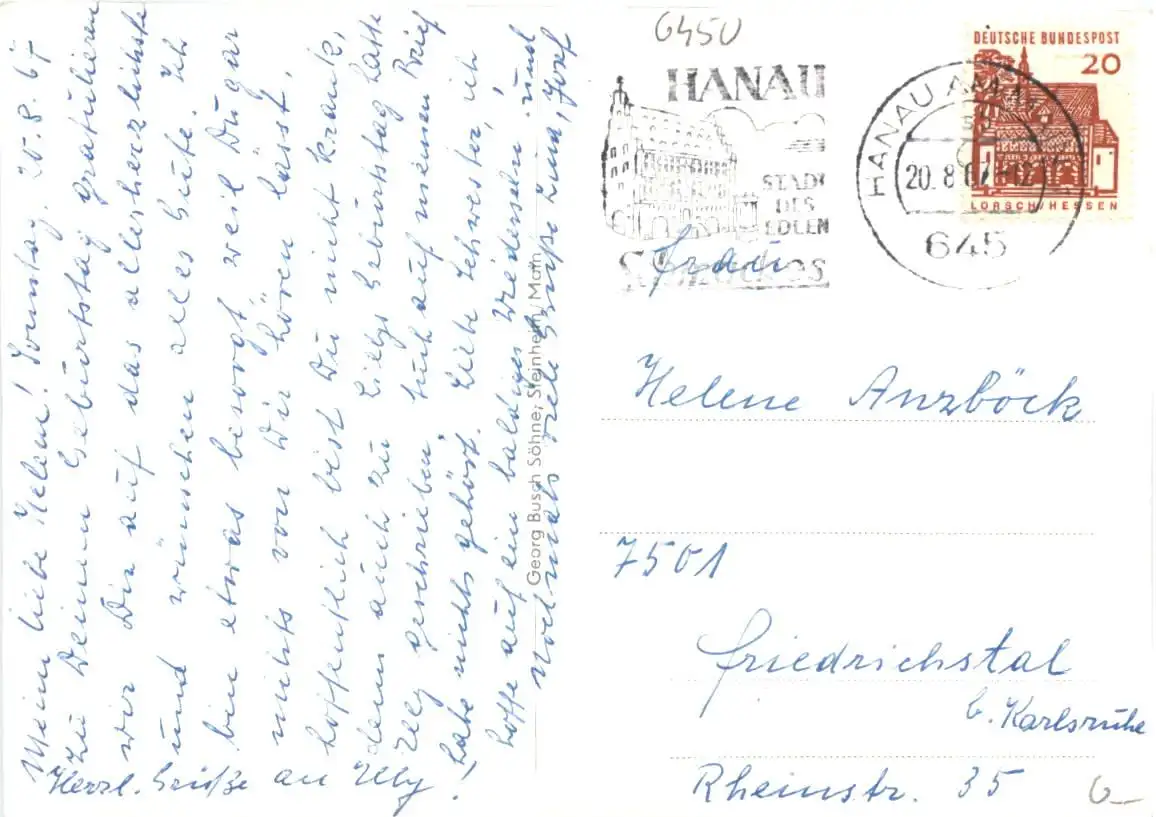 Meine liebe Helene! Sonntag. 20.8.67
Zu Deinem Geburtstag gratulieren
wir Dir auf das allerherzlichste
und wünschen alles Gute. Ich
bin etwas besorgt weil Du gar
nichts von Dir hören lässt.
Hoffentlich bist Du nicht krank,
denn auch zu Ellys Geburtstag hatte
Elly geschrieben, auch auf meinen Brief
habe nichts gehört. Liebe Schwester, ich
hoffe auf ein baldiges Wiedersehn und
Nochmals viele Grüße Euna, Josef
Herzl. Grüße an Elly!
Georg Busch Söhne, Steinheim/Main
6450
HANAU
STADT
DES
EDLEN
SCHMUCKES
HANAU AM MAIN
20.8.67-12
645
DEUTSCHE BUNDESPOST
20
LORSCH/HESSEN
Frau
Helene Anzböck
7501
Friedrichstal
b. Karlsruhe
Rheinstr. 35
6-